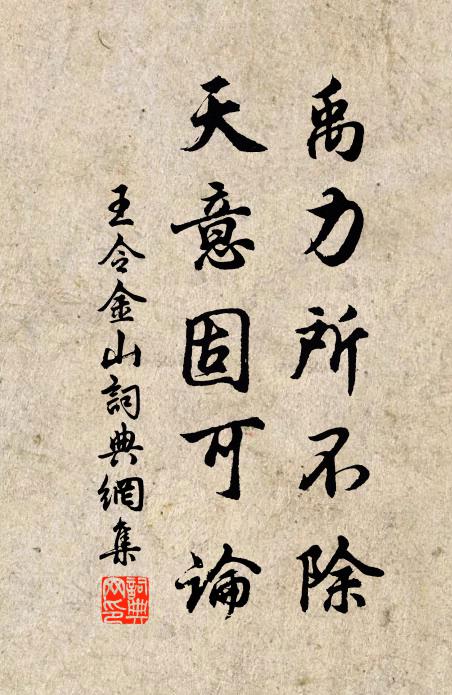 禹力所不除
天意固可論
王令金山詞典網集
詞典網印